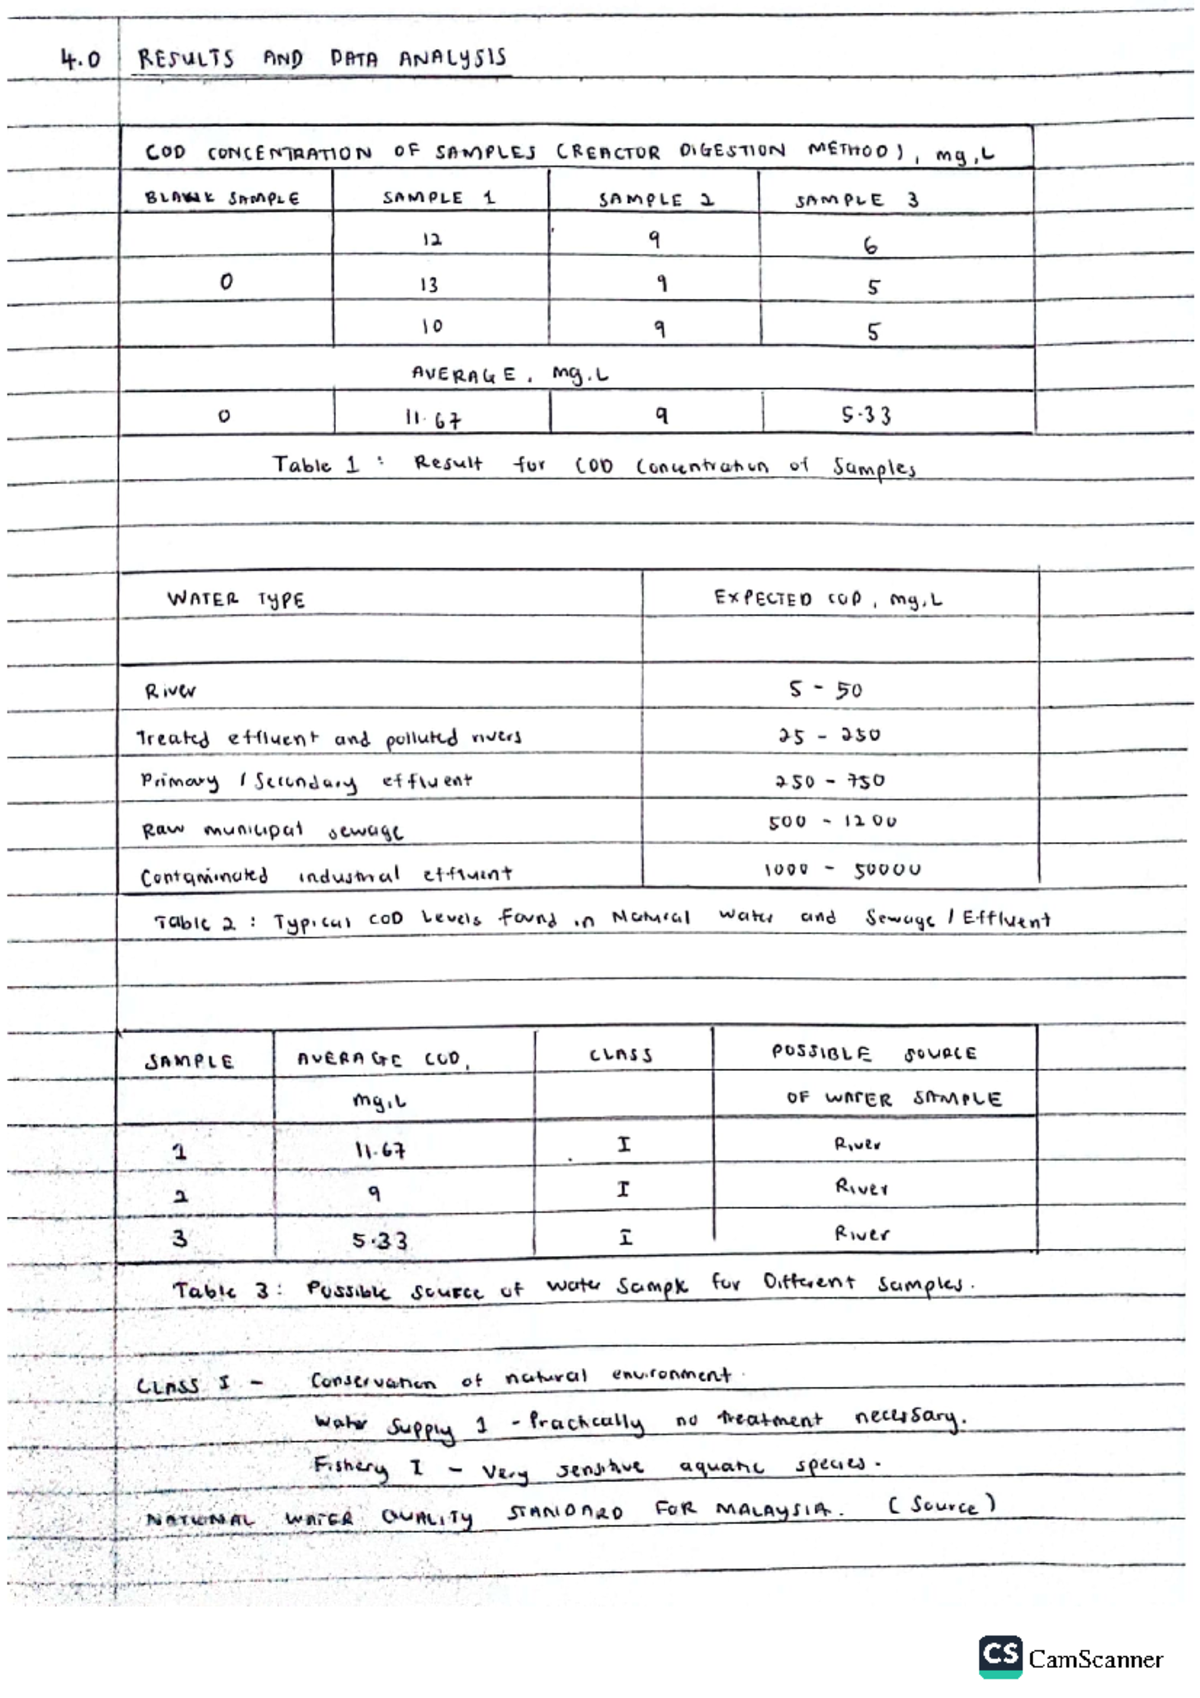 4.0 RESULTS AND DATA ANALYSIS
COD CONCENTRATION OF SAMPLES (REACTOR DIGESTION METHOD), mg,L
BLANK SAMPLE SAMPLE 1 SAMPLE 2 SAMPLE 3
12 9 6
0 13 9 5
10 9 5
AVERAGE, mg,L
0 11.67 9 5.33
Table 1 : Result for COD Concentration of Samples
WATER TYPE EXPECTED COD, mg,L
River 5 - 50
Treated effluent and polluted rivers 25 - 250
Primary / Secondary effluent 250 - 750
Raw municipal sewage 500 - 1200
Contaminated industrial effluent 1000 - 50000
Table 2 : Typical COD Levels Found in Natural Water and Sewage / Effluent
SAMPLE AVERAGE COD, CLASS POSSIBLE SOURCE
mg,L OF WATER SAMPLE
1 11.67 I River
2 9 I River
3 5.33 I River
Table 3 : Possible Source of Water Sample for Different Samples.
CLASS I - Conservation of natural environment.
Water Supply 1 - Practically no treatment necessary.
Fishery I - Very sensitive aquatic species.
NATIONAL WATER QUALITY STANDARD FOR MALAYSIA. (Source)
CS CamScanner